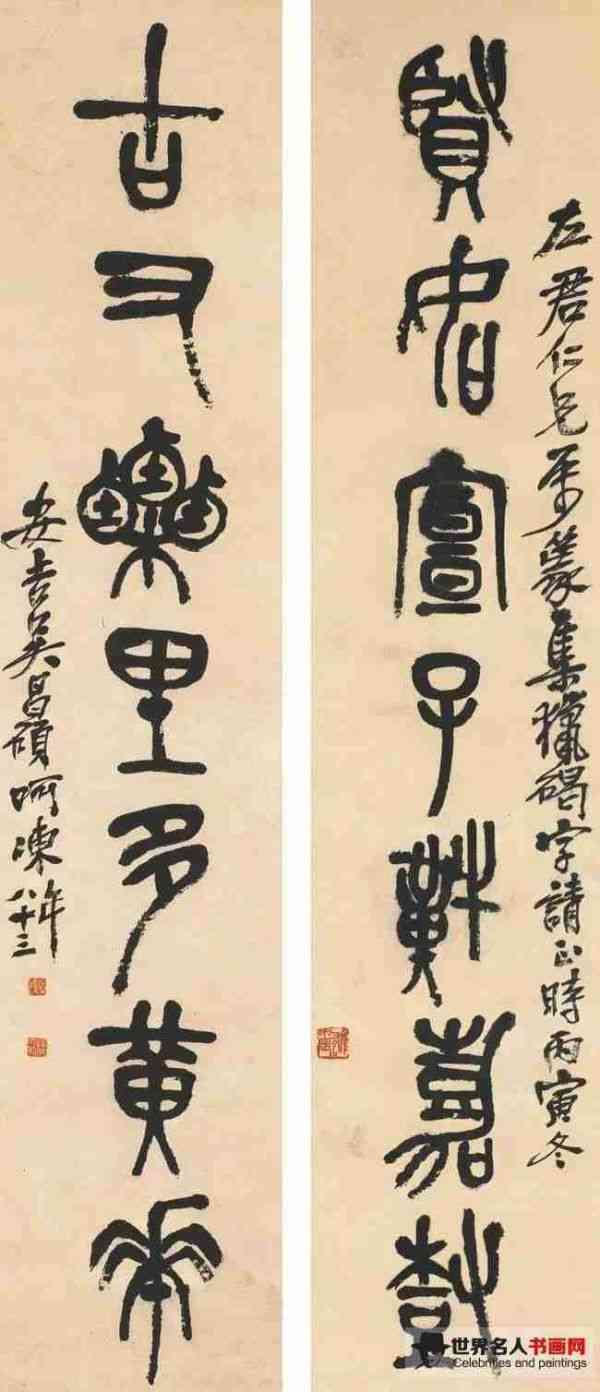 左君仁兄屬篆集獵碣字請正時丙寅冬
賢如宣子嘉樹
古又栗里多黄華
安吉吳昌碩呵凍年八十三
世界名人书画网
Celebrities and paintings